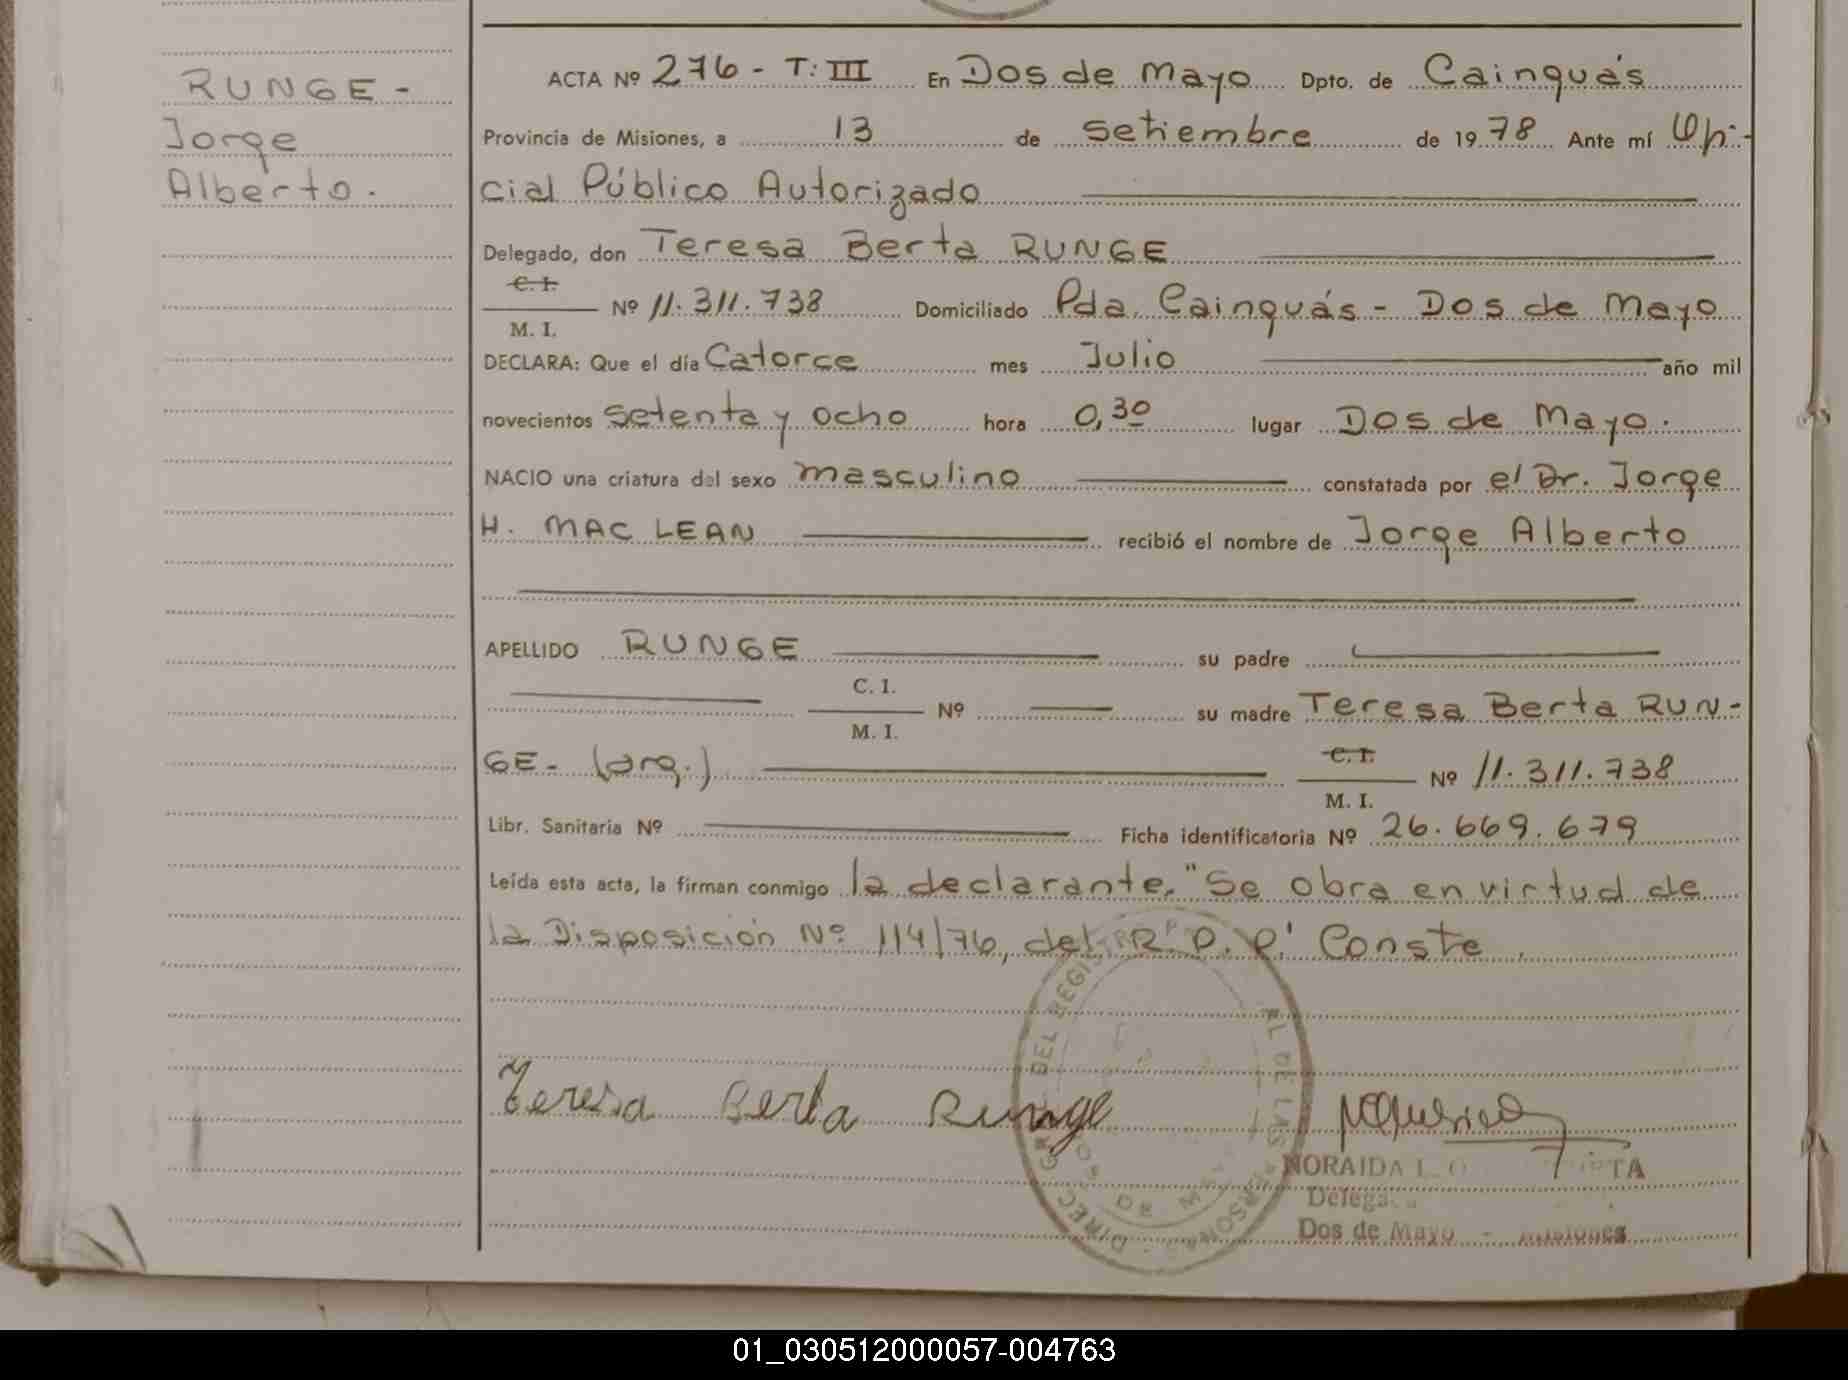 RUNGE-
Jorge
Alberto.
ACTA Nº 276 - T: III En Dos de Mayo Dpto. de Cainguás
Provincia de Misiones, a 13 de setiembre de 1978 Ante mí Ofi-
cial Público Autorizado
Delegado, don Teresa Berta RUNGE
C. I.
M. I. Nº 11.311.738 Domiciliado Pda. Cainguás - Dos de Mayo
DECLARA: Que el día Catorce mes Julio año mil
novecientos setenta y ocho hora 0,30 lugar Dos de Mayo.
NACIO una criatura del sexo masculino constatada por el Dr. Jorge
H. MAC LEAN recibió el nombre de Jorge Alberto
APELLIDO RUNGE su padre
C. I.
M. I. Nº su madre Teresa Berta RUN-
GE- (arg.) C. I.
M. I. Nº 11.311.738
Libr. Sanitaria Nº Ficha identificatoria Nº 26.669.679
Leída esta acta, la firman conmigo la declarante. "Se obra en virtud de
la Disposición Nº 114/76, del R. P. P." Conste.
Teresa Berta Runge
DEL REGIST
DE LAS PERSONAS
DOS DE MAYO
NORAIDA L.
Dos de Mayo - Misiones
01_030512000057-004763